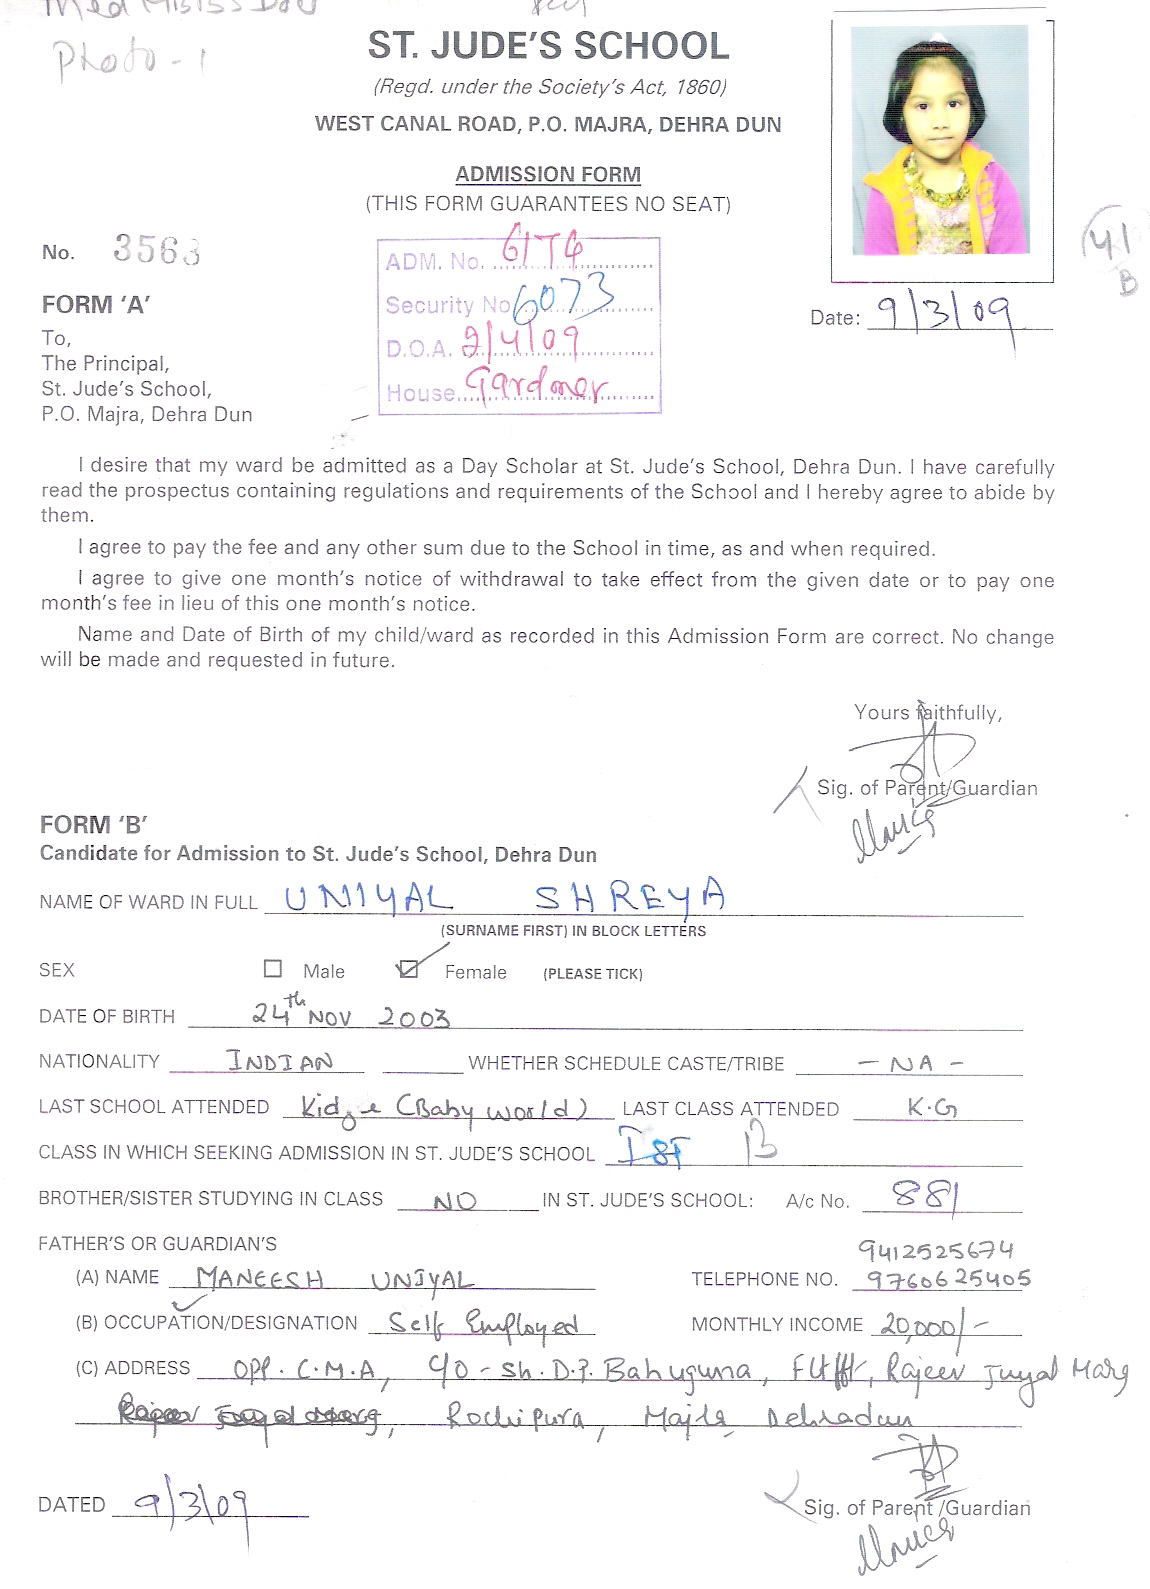 Photo - 1
ST. JUDE'S SCHOOL
(Regd. under the Society's Act, 1860)
WEST CANAL ROAD, P.O. MAJRA, DEHRA DUN
ADMISSION FORM
(THIS FORM GUARANTEES NO SEAT)
No. 3563
ADM. No. 6174
Security No 6073
D.O.A. 2/4/09
House Gardner
41
B
Date: 9/3/09
FORM 'A'
To,
The Principal,
St. Jude's School,
P.O. Majra, Dehra Dun
I desire that my ward be admitted as a Day Scholar at St. Jude's School, Dehra Dun. I have carefully
read the prospectus containing regulations and requirements of the School and I hereby agree to abide by
them.
I agree to pay the fee and any other sum due to the School in time, as and when required.
I agree to give one month's notice of withdrawal to take effect from the given date or to pay one
month's fee in lieu of this one month's notice.
Name and Date of Birth of my child/ward as recorded in this Admission Form are correct. No change
will be made and requested in future.
Yours faithfully,
Sig. of Parent/Guardian
FORM 'B'
Candidate for Admission to St. Jude's School, Dehra Dun
NAME OF WARD IN FULL UNIYAL SHREYA
(SURNAME FIRST) IN BLOCK LETTERS
SEX Male Female (PLEASE TICK)
DATE OF BIRTH 24th NOV 2003
NATIONALITY INDIAN WHETHER SCHEDULE CASTE/TRIBE - NA -
LAST SCHOOL ATTENDED (Baby world) LAST CLASS ATTENDED K.G
CLASS IN WHICH SEEKING ADMISSION IN ST. JUDE'S SCHOOL Ist B
BROTHER/SISTER STUDYING IN CLASS NO IN ST. JUDE'S SCHOOL: A/c No. 881
FATHER'S OR GUARDIAN'S 9412525674
(A) NAME MANEESH UNIYAL TELEPHONE NO. 9760625405
(B) OCCUPATION/DESIGNATION Self Employed MONTHLY INCOME 20,000/-
(C) ADDRESS Opp. C.M.A, C/O - Sh. D.P. Bahuguna, Rajeev Juyal Marg
Rochipura, Majra Dehradun
DATED 9/3/09
Sig. of Parent /Guardian